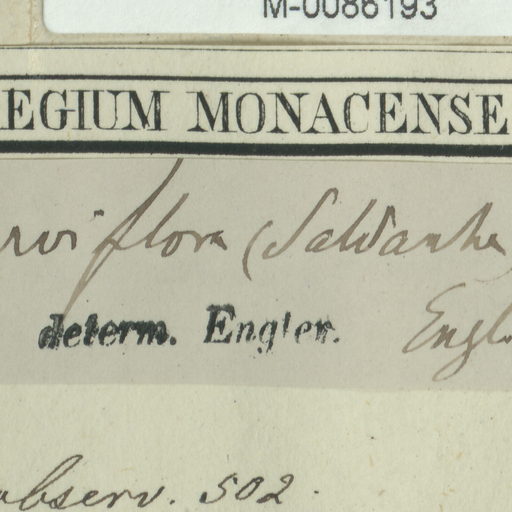 M-0086193
EGIUM MONACENSE
rviflora (Saldanha
determ. Engler. Engl.
observ. 502.